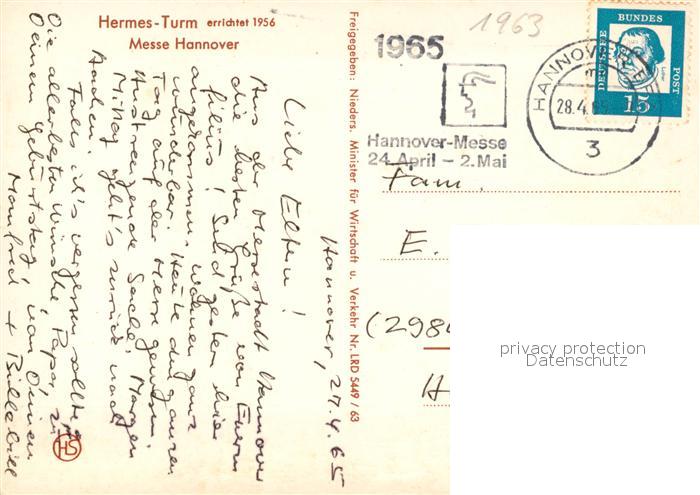 Hermes-Turm errichtet 1956
Messe Hannover
Hannover, 27.4.65
Liebe Eltern!
Aus der Messestadt Hannover
die besten Grüße von Euern
filius! Sind gestern hier
angekommen, wohnen ganz
wunderbar. Heute den ganzen
Tag auf der Messe gewesen.
Anstrengende Sache. Morgen
Mittag geht's zurück nach
Aachen.
Falls ich's vergessen sollte,
Die allerbesten Wünsche, Papa, zu
Deinem Geburtstag, von Deinen
Manfred +
HS
Freigegeben: Nieders. Minister für Wirtschaft u. Verkehr Nr. LRD 5449 / 63
1963
1965
Hannover-Messe
24. April – 2. Mai
HANNOVER
28.4.65
3
DEUTSCHE
BUNDES
POST
15
Fam.
E.
(298
H
privacy protection
Datenschutz